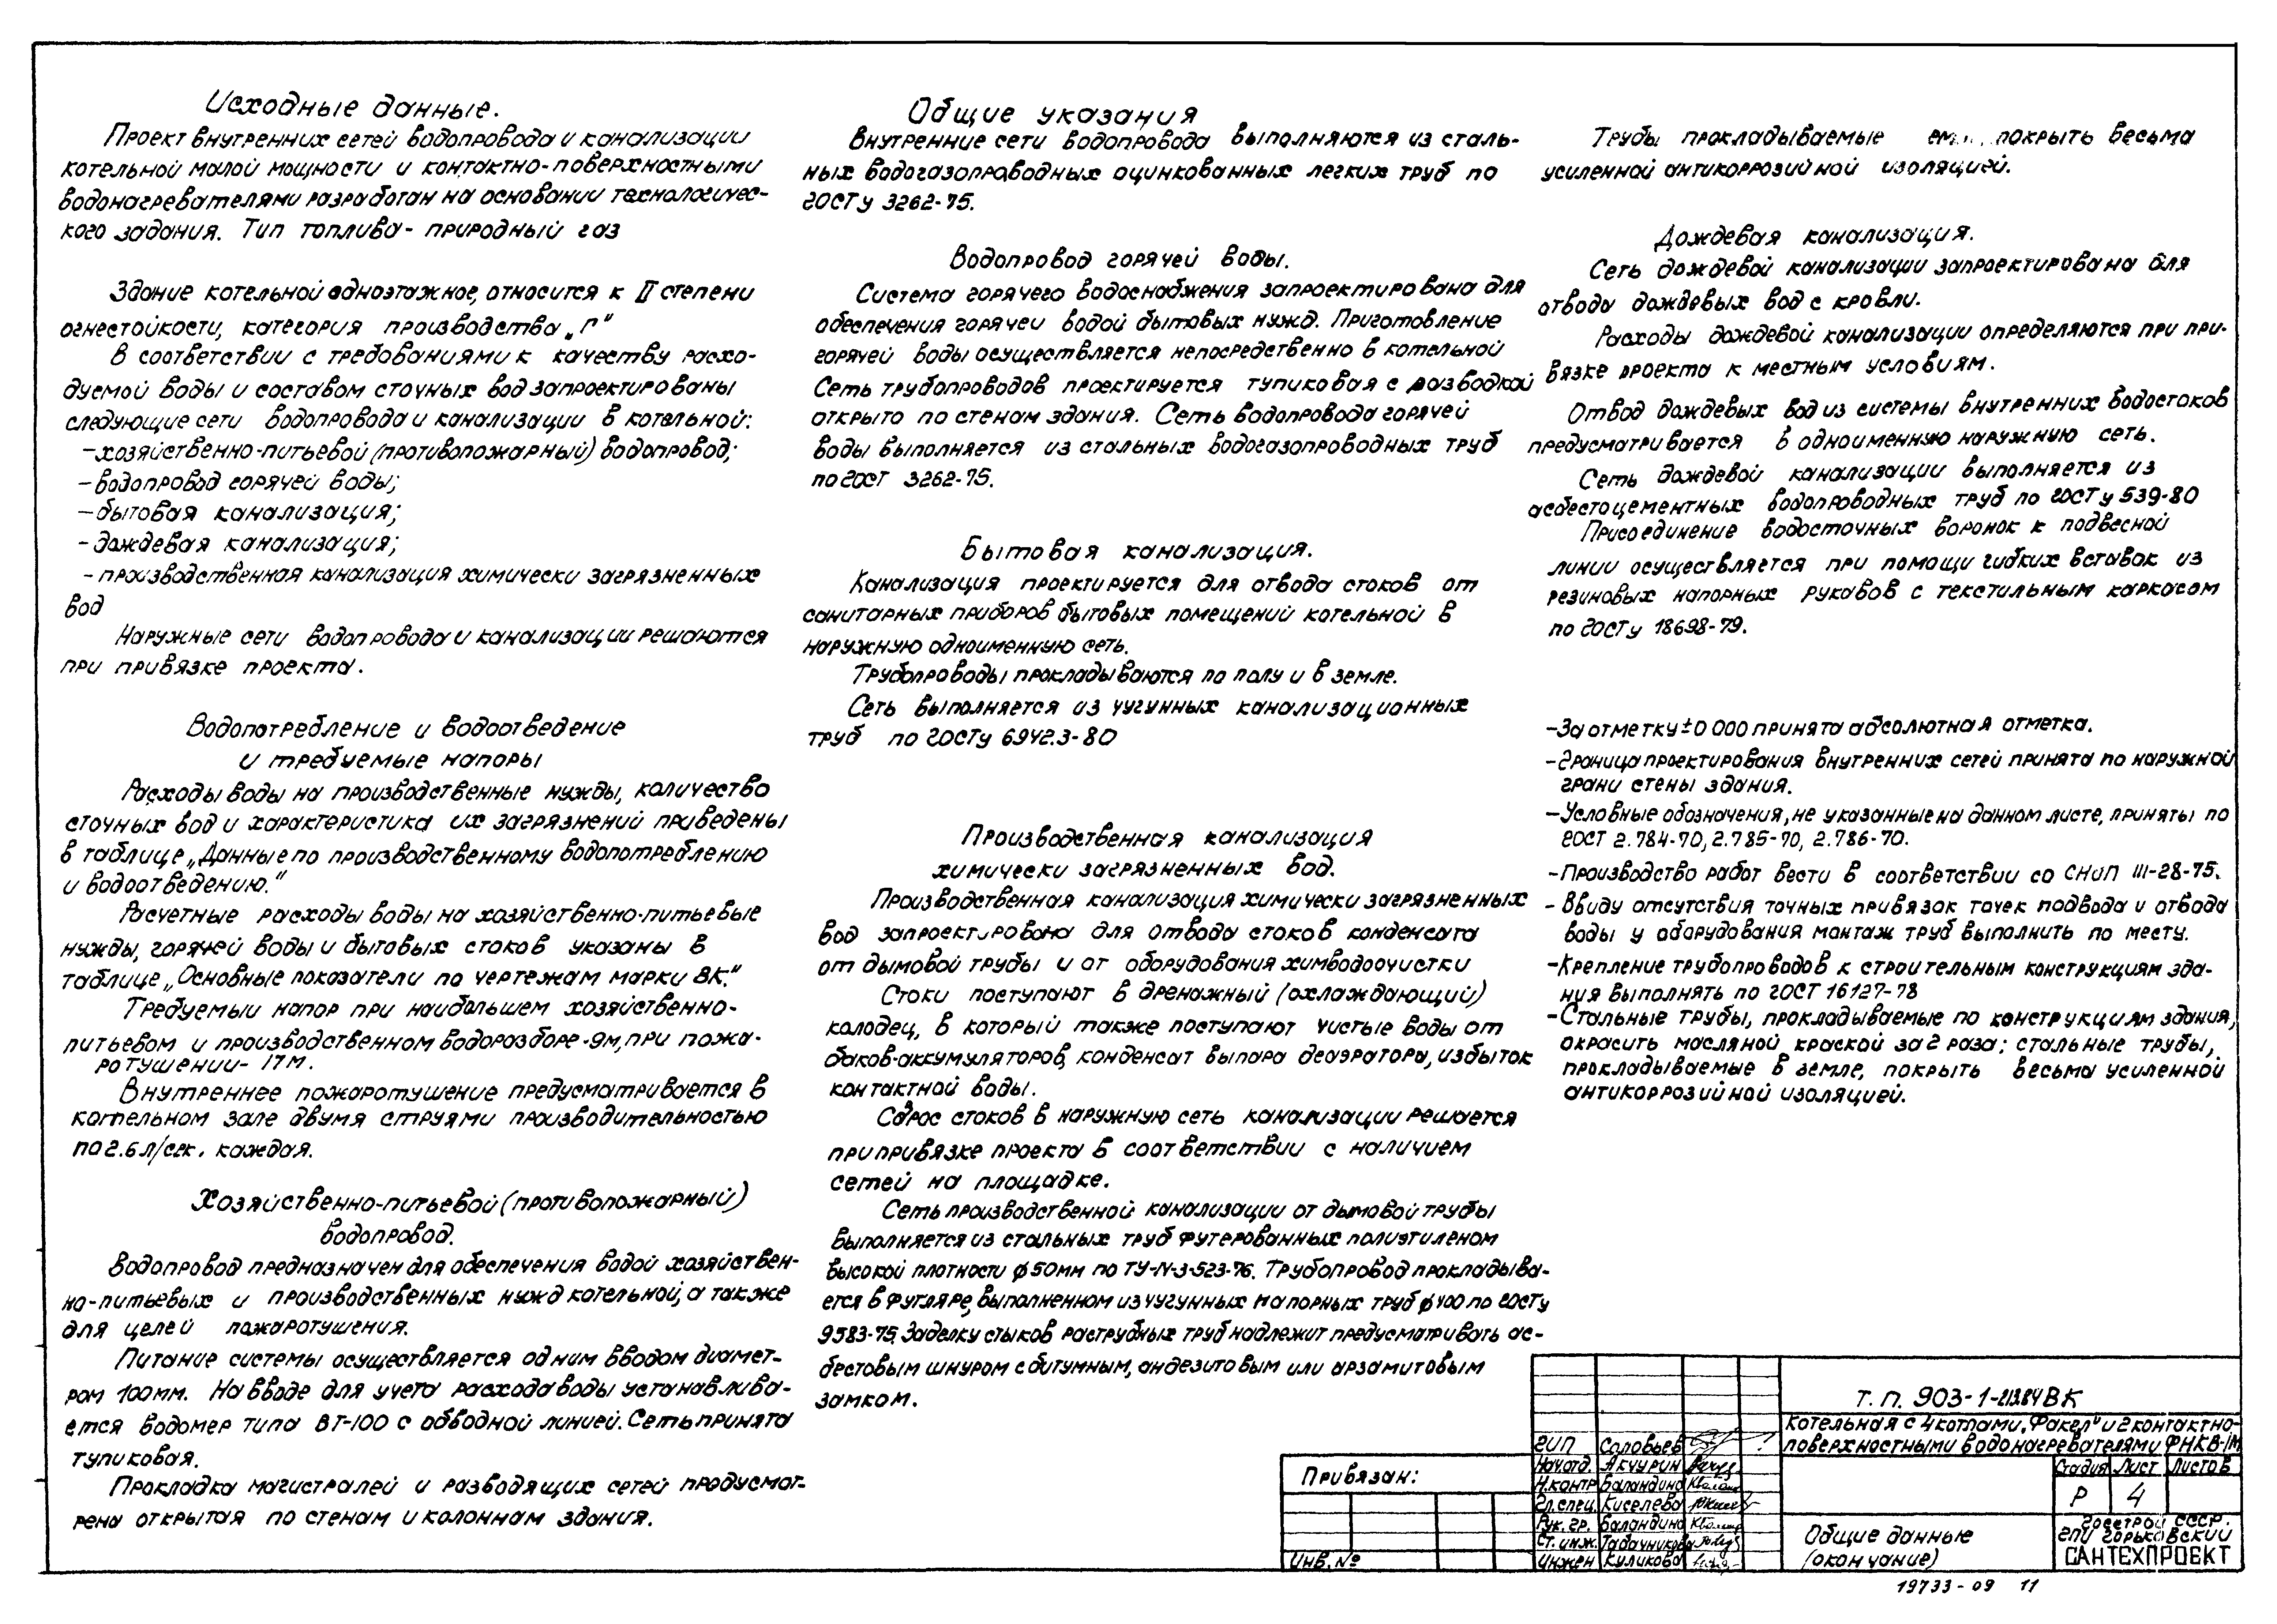 Исходные данные.
Проект внутренних сетей водопровода и канализации
котельной малой мощности и контактно-поверхностными
водонагревателями разработан на основании технологичес-
кого задания. Тип топлива - природный газ
Здание котельной одноэтажное, относится к II степени
огнестойкости, категория производства „Г"
В соответствии с требованиями к качеству расхо-
дуемой воды и составом сточных вод запроектированы
следующие сети водопровода и канализации в котельной:
- хозяйственно-питьевой (противопожарный) водопровод;
- водопровод горячей воды;
- бытовая канализация;
- дождевая канализация;
- производственная канализация химически загрязненных
вод
Наружные сети водопровода и канализации решаются
при привязке проекта.
Водопотребление и водоотведение
и требуемые напоры
Расходы воды на производственные нужды, количество
сточных вод и характеристика их загрязнений приведены
в таблице „Данные по производственному водопотреблению
и водоотведению."
Расчетные расходы воды на хозяйственно-питьевые
нужды, горячей воды и бытовых стоков указаны в
таблице „Основные показатели по чертежам марки ВК."
Требуемый напор при наибольшем хозяйственно-
питьевом и производственном водоразборе - 9м, при пожа-
ротушении - 17м.
Внутреннее пожаротушение предусматривается в
котельном зале двумя струями производительностью
по 2.6 л/сек. каждая.
Хозяйственно-питьевой (противопожарный)
водопровод.
Водопровод предназначен для обеспечения водой хозяйствен-
но-питьевых и производственных нужд котельной, а также
для целей пожаротушения.
Питание системы осуществляется одним вводом диамет-
ром 100мм. На вводе для учета расхода воды устанавлива-
ется водомер типа ВТ-100 с обводной линией. Сеть принята
тупиковая.
Прокладка магистралей и разводящих сетей предусмот-
рена открытая по стенам и колоннам здания.
Общие указания
Внутренние сети водопровода выполняются из сталь-
ных водогазопроводных оцинкованных легких труб по
ГОСТу 3262-75.
Водопровод горячей воды.
Система горячего водоснабжения запроектирована для
обеспечения горячей водой бытовых нужд. Приготовление
горячей воды осуществляется непосредственно в котельной
Сеть трубопроводов проектируется тупиковая с разводкой
открыто по стенам здания. Сеть водопровода горячей
воды выполняется из стальных водогазопроводных труб
по ГОСТ 3262-75.
Бытовая канализация.
Канализация проектируется для отвода стоков от
санитарных приборов бытовых помещений котельной в
наружную одноименную сеть.
Трубопроводы прокладываются по полу и в земле.
Сеть выполняется из чугунных канализационных
труб по ГОСТу 6942.3-80
Производственная канализация
химически загрязненных вод.
Производственная канализация химически загрязненных
вод запроектирована для отвода стоков конденсата
от дымовой трубы и от оборудования химводоочистки
Стоки поступают в дренажный (охлаждающий)
колодец, в который также поступают чистые воды от
баков-аккумуляторов, конденсат выпара деаэратора, избыток
контактной воды.
Сброс стоков в наружную сеть канализации решается
при привязке проекта в соответствии с наличием
сетей на площадке.
Сеть производственной канализации от дымовой трубы
выполняется из стальных труб футерованных полиэтиленом
высокой плотности ф50мм по ТУ-IV-3-523-76. Трубопровод прокладыва-
ется в футляре, выполненном из чугунных напорных труб ф400 по ГОСТу
9583-75. Заделку стыков раструбных труб надлежит предусматривать ас-
бестовым шнуром с битумным, андезитовым или арзамитовым
замком.
Трубы прокладываемые покрыть весьма
усиленной антикоррозийной изоляцией.
Дождевая канализация.
Сеть дождевой канализации запроектирована для
отвода дождевых вод с кровли.
Расходы дождевой канализации определяются при при-
вязке проекта к местным условиям.
Отвод дождевых вод из системы внутренних водостоков
предусматривается в одноименную наружную сеть.
Сеть дождевой канализации выполняется из
асбестоцементных водопроводных труб по ГОСТу 539-80
Присоединение водосточных воронок к подвесной
линии осуществляется при помощи гибких вставок из
резиновых напорных рукавов с текстильным каркасом
по ГОСТу 18698-79.
- За отметку ±0 000 принята абсолютная отметка.
- Граница проектирования внутренних сетей принята по наружной
грани стены здания.
- Условные обозначения, не указанные на данном листе, приняты по
ГОСТ 2.784-70, 2.785-70, 2.786-70.
- Производство работ вести в соответствии со СНиП III-28-75.
- Ввиду отсутствия точных привязок точек подвода и отвода
воды у оборудования монтаж труб выполнить по месту.
- Крепление трубопроводов к строительным конструкциям зда-
ния выполнять по ГОСТ 16127-78
- Стальные трубы, прокладываемые по конструкциям здания,
окрасить масляной краской за 2 раза; стальные трубы,
прокладываемые в земле, покрыть весьма усиленной
антикоррозийной изоляцией.
Привязан:
Инв. №
ГИП Соловьев
Нач.отд. Акчурин
Н.контр Баландина
Гл.спец. Киселева
Рук. гр. Баландина
Ст. инж. Табачникова
Инжен Куликова
Т. П. 903-1-213.84 ВК
Котельная с 4 котлами „Факел" и 2 контактно-
поверхностными водонагревателями ФНКВ-1М
Стадия Лист Листов
Р 4
Общие данные
(окончание)
Госстрой СССР.
ГПИ Горьковский
САНТЕХПРОЕКТ
19733-09 11